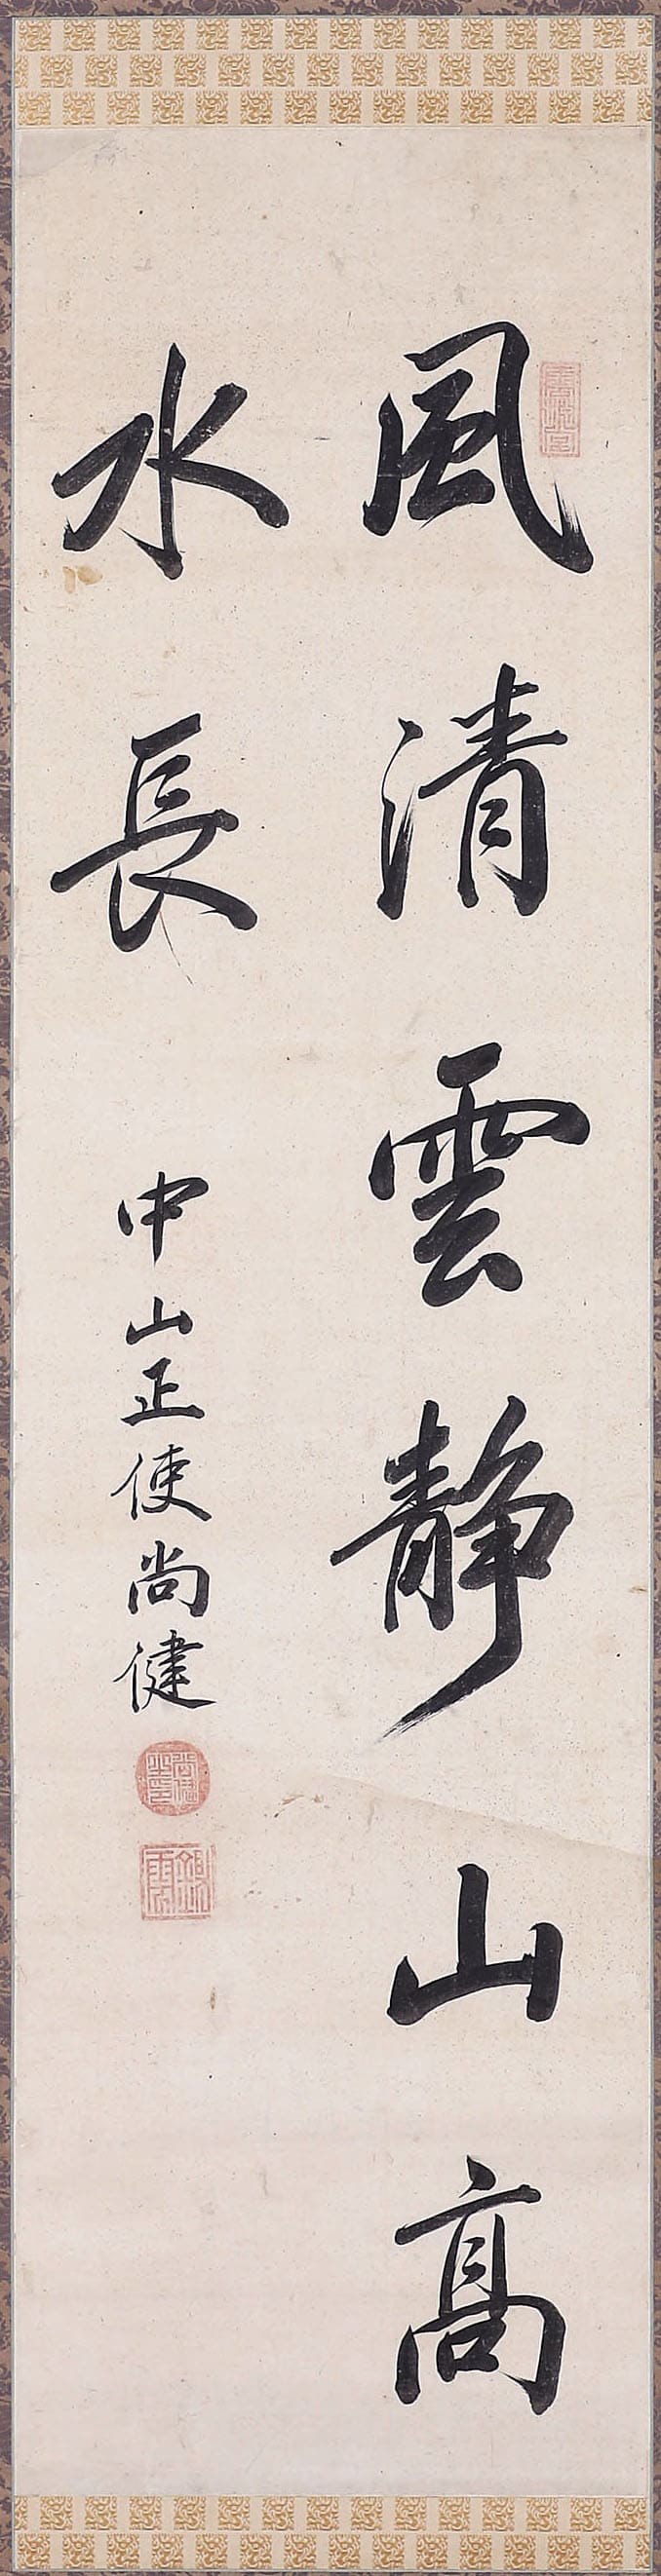 風清雲静山高
水長
中山正使尚健